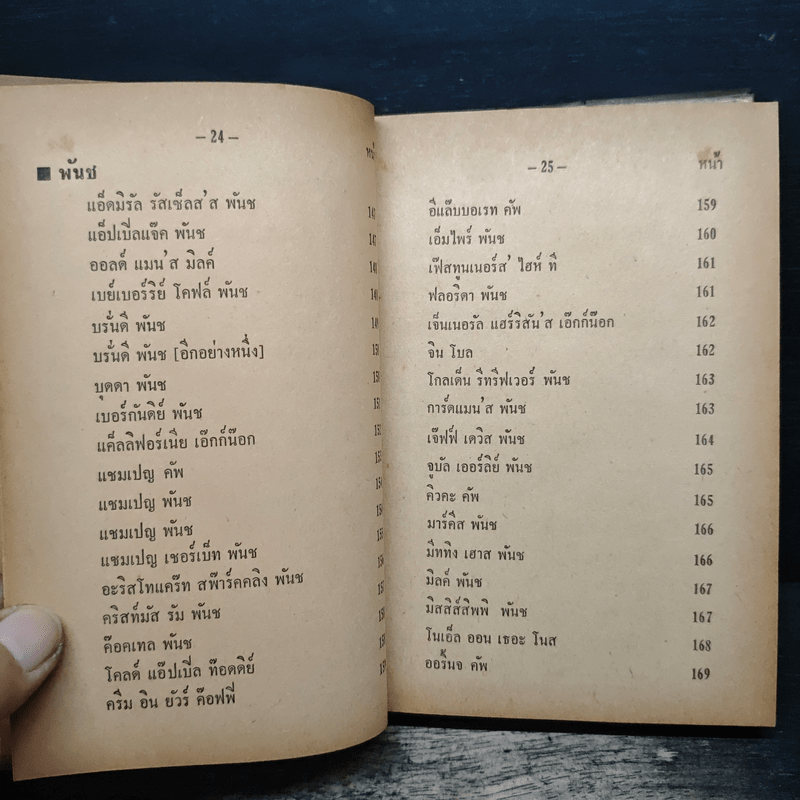 — 24 —
หน้า
■ พันช
แอ็ดมิรัล รัสเซ็ลส'ส พันช
แอ็ปเปิ่ลแจ๊ค พันช
ออลด์ แมน'ส มิลค์
เบย์เบอร์ริย์ โคฟล์ พันช
บรั่นดี พันช
บรั่นดี พันช [อีกอย่างหนึ่ง]
บุดดา พันช
เบอร์กันดิย์ พันช
แค็ลลิฟอร์เนีย เอ๊กก์น๊อก
แชมเปญ คัพ
แชมเปญ พันช
แชมเปญ พันช
แชมเปญ เชอร์เบ็ท พันช
อะริสโทแคร๊ท สพ๊าร์คคลิง พันช
คริสท์มัส รัม พันช
ค๊อคเทล พันช
โคลด์ แอ๊ปเปิ่ล ท๊อดดิย์
ครีม อิน ยัวร์ ค๊อฟฟี่
— 25 —
หน้า
อีแล๊บบอเรท คัพ 159
เอ็มไพร์ พันช 160
เฟ๊สทูนเนอร์ส' ไฮห์ ที 161
ฟลอริดา พันช 161
เจ็นเนอรัล แฮร์ริสัน'ส เอ๊กก์น๊อก 162
จิน โบล 162
โกลเด็น รีทรีฟเวอร์ พันช 163
การ์ดแมน'ส พันช 163
เจ๊ฟฟ์ เดวิส พันช 164
จูบัล เออร์ลิย์ พันช 165
คิวคะ คัพ 165
มาร์คีส พันช 166
มีททิง เฮาส พันช 166
มิลค์ พันช 167
มิสสิส์สิพพิ พันช 167
โนเอ็ล ออน เธอะ โนส 168
ออริ้นจ คัพ 169